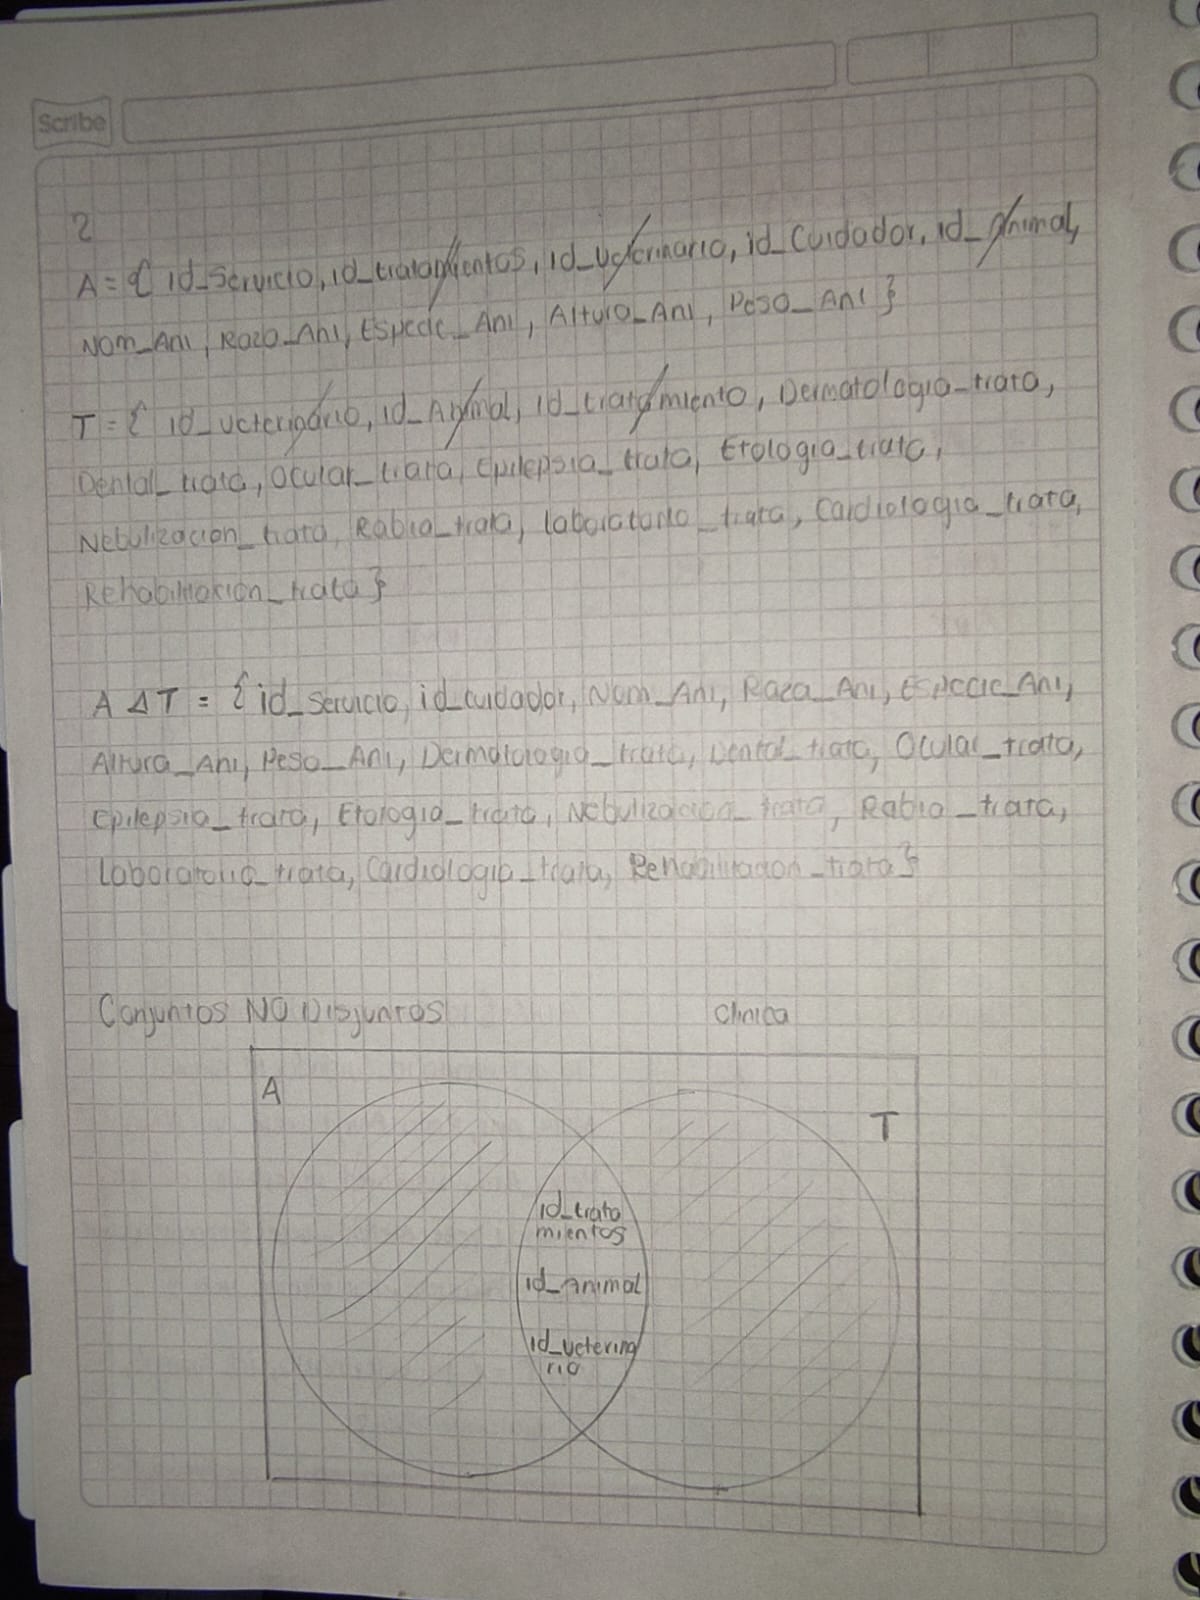 Scribe
2
A = { id_Servicio, id_tratamientos, id_veterinario, id_Cuidador, id_Animal,
Nom_Ani, Raza_Ani, Especie_Ani, Altura_Ani, Peso_Ani }
T = { id_veterinario, id_Animal, id_tratamiento, Dermatologia_trata,
Dental_trata, Ocular_trata, Epilepsia_trata, Etologia_trata,
Nebulizacion_trata, Rabia_trata, laboratorio_trata, Cardiologia_trata,
Rehabilitacion_trata }
A Δ T = { id_Servicio, id_cuidador, Nom_Ani, Raza_Ani, Especie_Ani,
Altura_Ani, Peso_Ani, Dermatologia_trata, Dental_trata, Ocular_trata,
Epilepsia_trata, Etologia_trata, Nebulizacion_trata, Rabia_trata,
Laboratorio_trata, Cardiologia_trata, Rehabilitacion_trata }
Conjuntos NO Disjuntos
Clinica
A
T
id_trata
mientos
id_Animal
id_veterina
rio